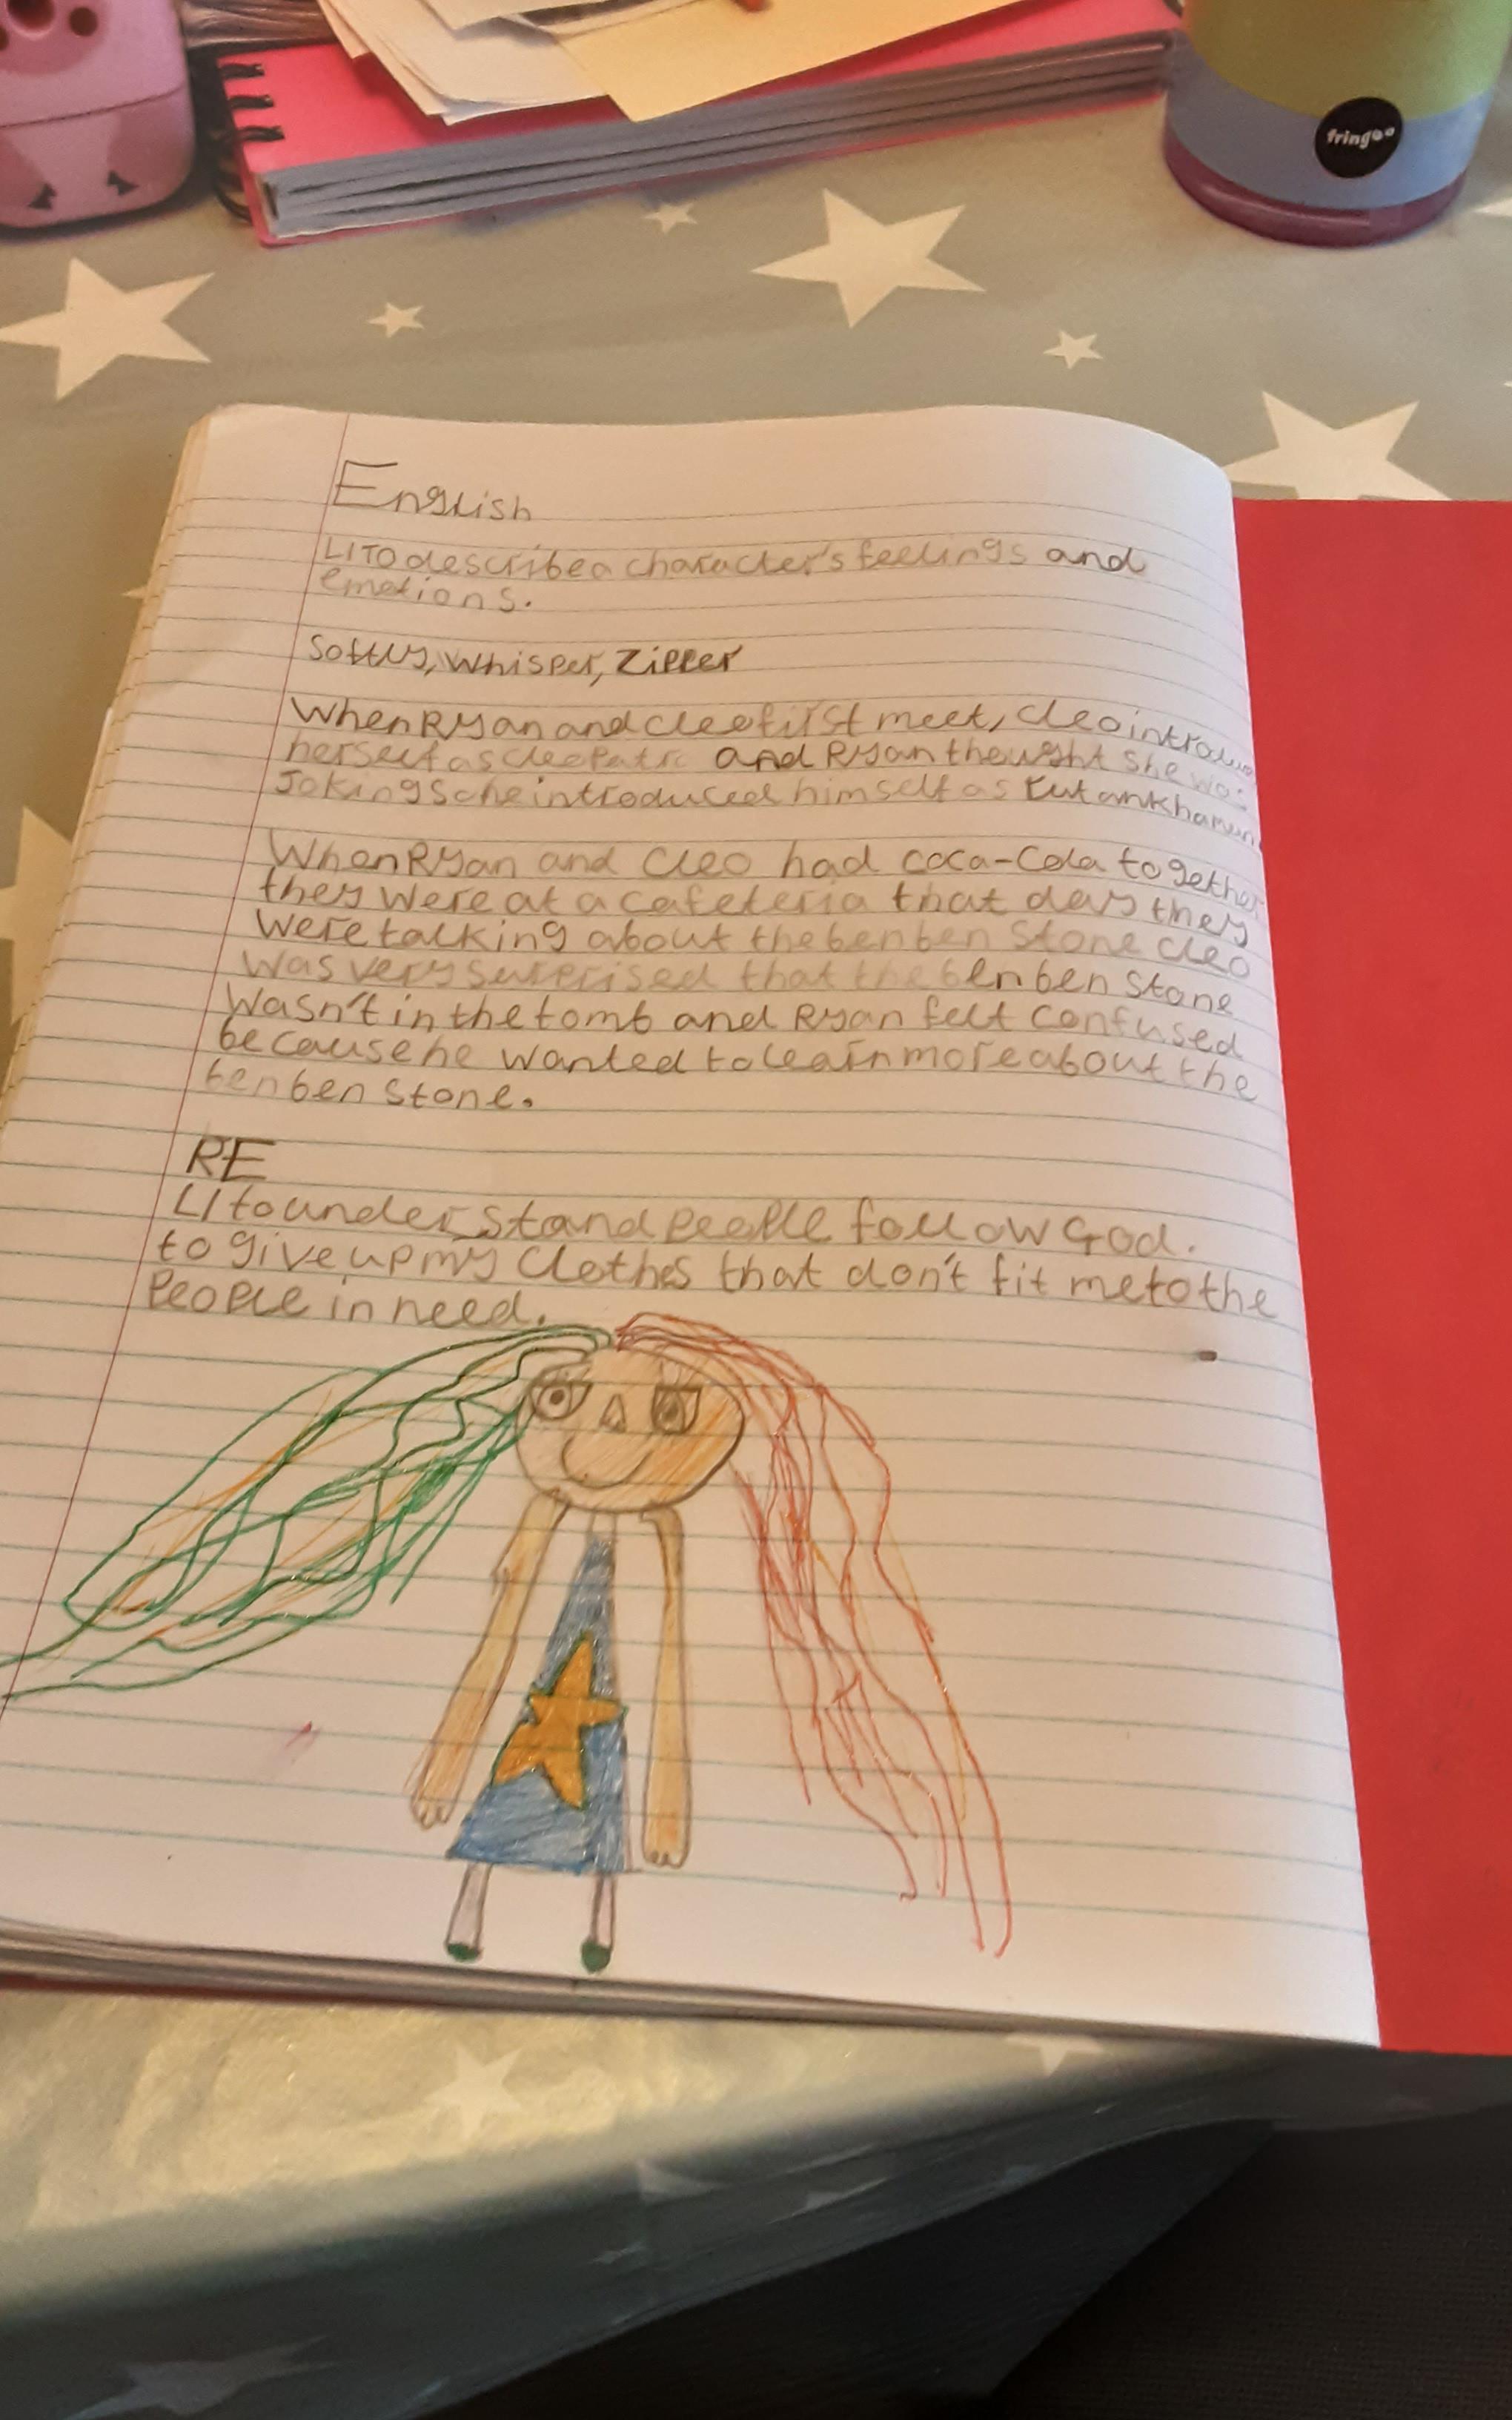 fringoo
English
LI To describe a character's feelings and
emotions.
Softly, Whisper, Zipper
When Ryan and Cleo first meet, Cleo
herself as Cleopatra and Ryan thought she was
Joking so he introduced himself as Tutankhamun
When Ryan and Cleo had coca-cola together
they were at a cafeteria that day they
were talking about the benben Stone Cleo
was very surprised that the benben Stone
wasn't in the tomb and Ryan felt confused
because he wanted to learn more about the
benben stone.
RE
LI to understand people follow God.
to give up my Clothes that don't fit me to the
People in need.